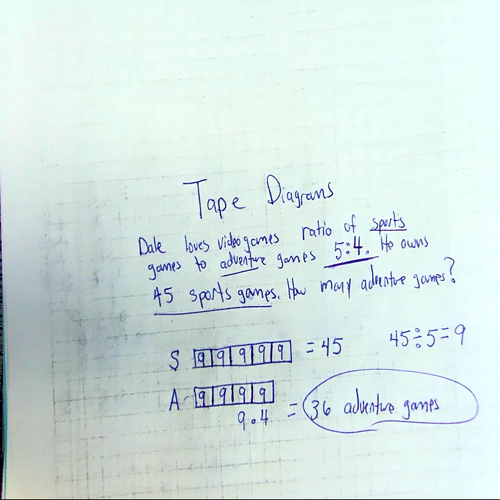 Tape Diagrams
Dale loves videogames ratio of sports
games to adventure games 5:4. He owns
45 sports games. How many adventure games?
S 9 9 9 9 9 = 45 45÷5=9
A 9 9 9 9
9·4 = 36 adventure games